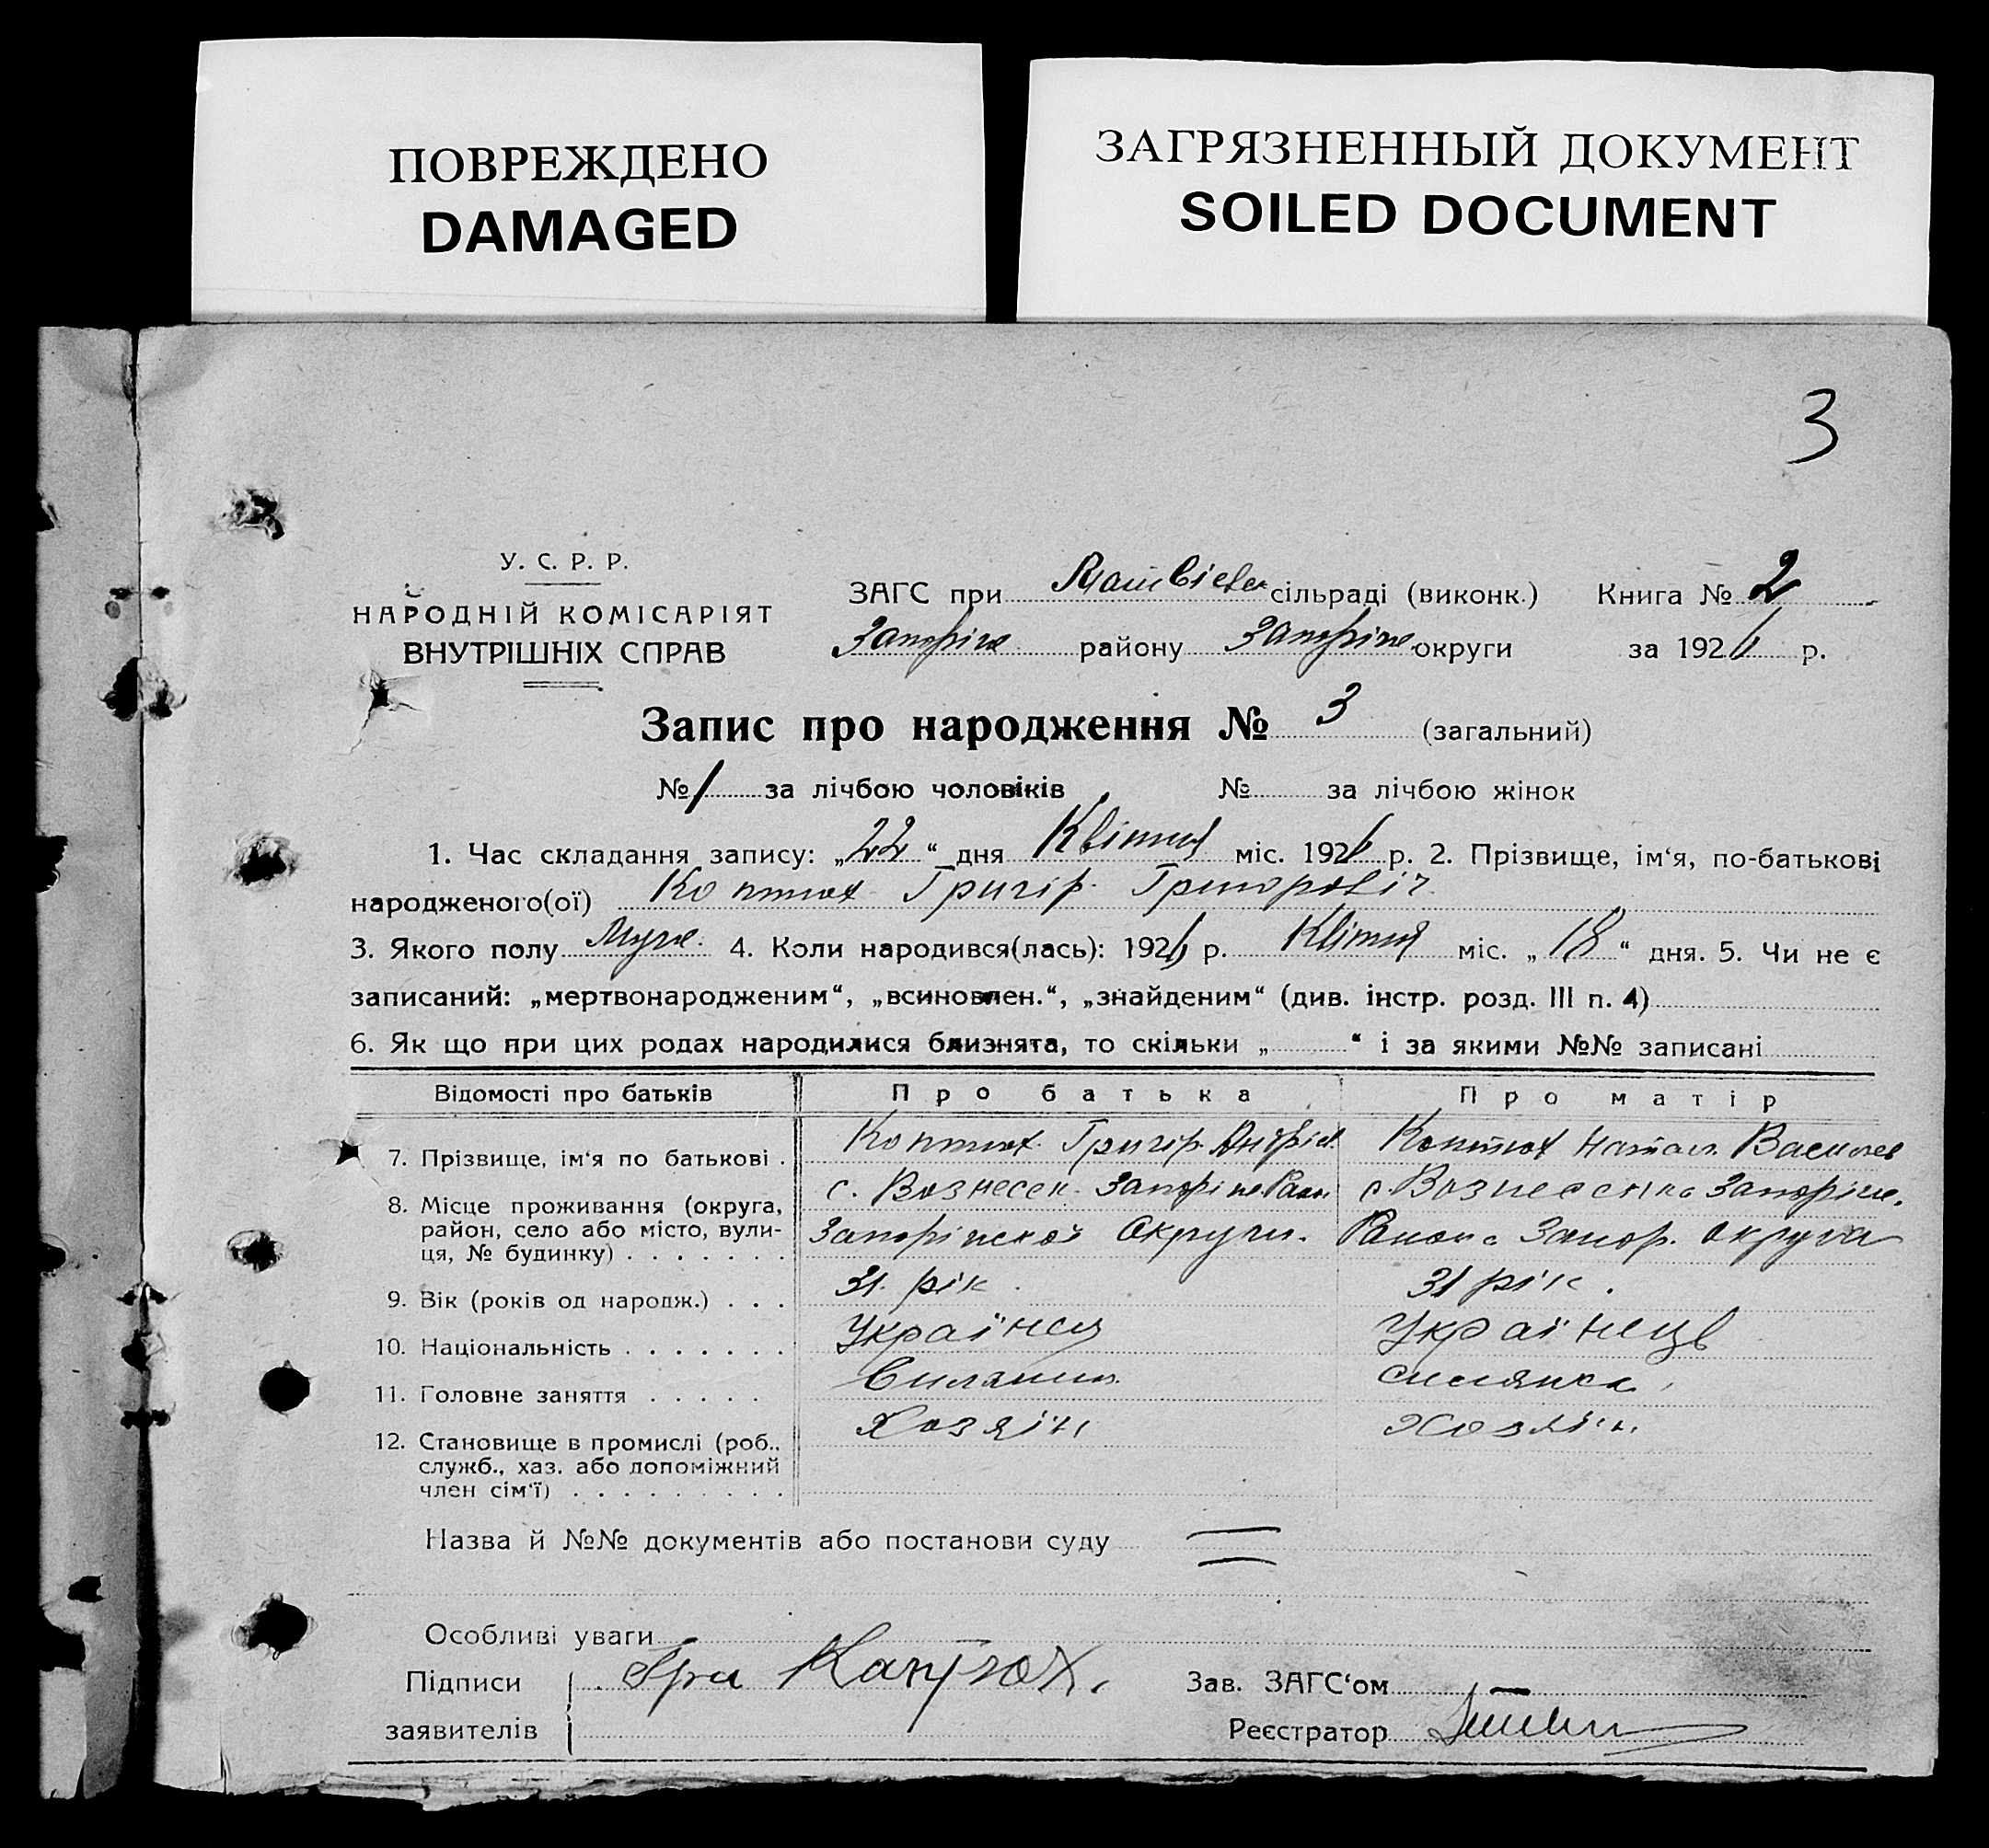 ПОВРЕЖДЕНО
DAMAGED
ЗАГРЯЗНЕННЫЙ ДОКУМЕНТ
SOILED DOCUMENT
3
У. С. Р. Р.
НАРОДНІЙ КОМІСАРІЯТ
ВНУТРІШНІХ СПРАВ
ЗАГС при сільраді (виконк.) Книга № 2
Запоріж району Запоріж округи за 1926 р.
Запис про народження № 3 (загальний)
№ 1 за лічбою чоловіків № за лічбою жінок
1. Час складання запису: „22“ дня Квітня міс. 1926 р. 2. Прізвище, ім‘я, по-батькові
народженого(ої) Коптюх Григір Григоровіч
3. Якого полу Муж. 4. Коли народився(лась): 1926 р. Квітня міс. „18“ дня. 5. Чи не є
записаний: „мертвонародженим“, „всиновлен.“, „знайденим“ (див. інстр. розд. III п. 4)
6. Як що при цих родах народилися близнята, то скільки „ “ і за якими №№ записані
Відомості про батьків Про батька Про матір
7. Прізвище, ім‘я по батькові . Коптюх Григір Андрієв Коптюх Натал. Василев
8. Місце проживання (округа, с. Вознесен. Запоріж. Район с. Вознесенка Запоріж.
район, село або місто, вули- Запоріжскоі Округи. Району Запор. округа
ця, № будинку) . . . . . . .
9. Вік (років од народж.) . . . 31 рік 31 рік.
10. Національність . . . . . . . Українец Українець
11. Головне заняття . . . . . Силянин Силянка
12. Становище в промислі (роб., Хозяїн Хозяїн.
служб., хаз. або допоміжний
член сім‘ї) . . . . . . . . .
Назва й №№ документів або постанови суду
Особливі уваги
Підписи Гри Каптюх. Зав. ЗАГС‘ом
заявителів Реєстратор